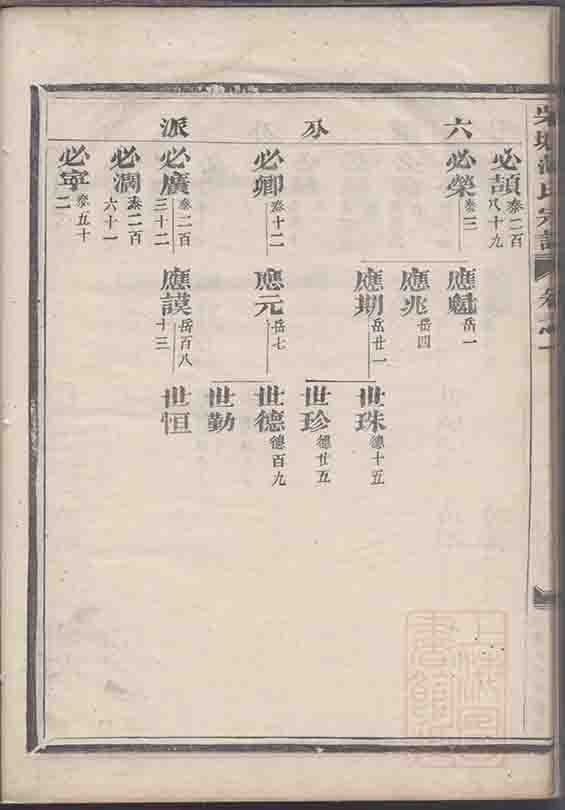 氏宗譜 卷之一
六分派
必頡 泰二百八十九
必榮 泰二
必卿 泰十二
必廣 泰二百三十二
必潤 泰二百六十一
必寧 泰五十二
應魁 岳一
應兆 岳四
應期 岳廿一
應元 岳七
應謨 岳百八十三
世珠 德十五
世珍 德廿五
世德 德百九
世勤
世恒
上海圖書館藏